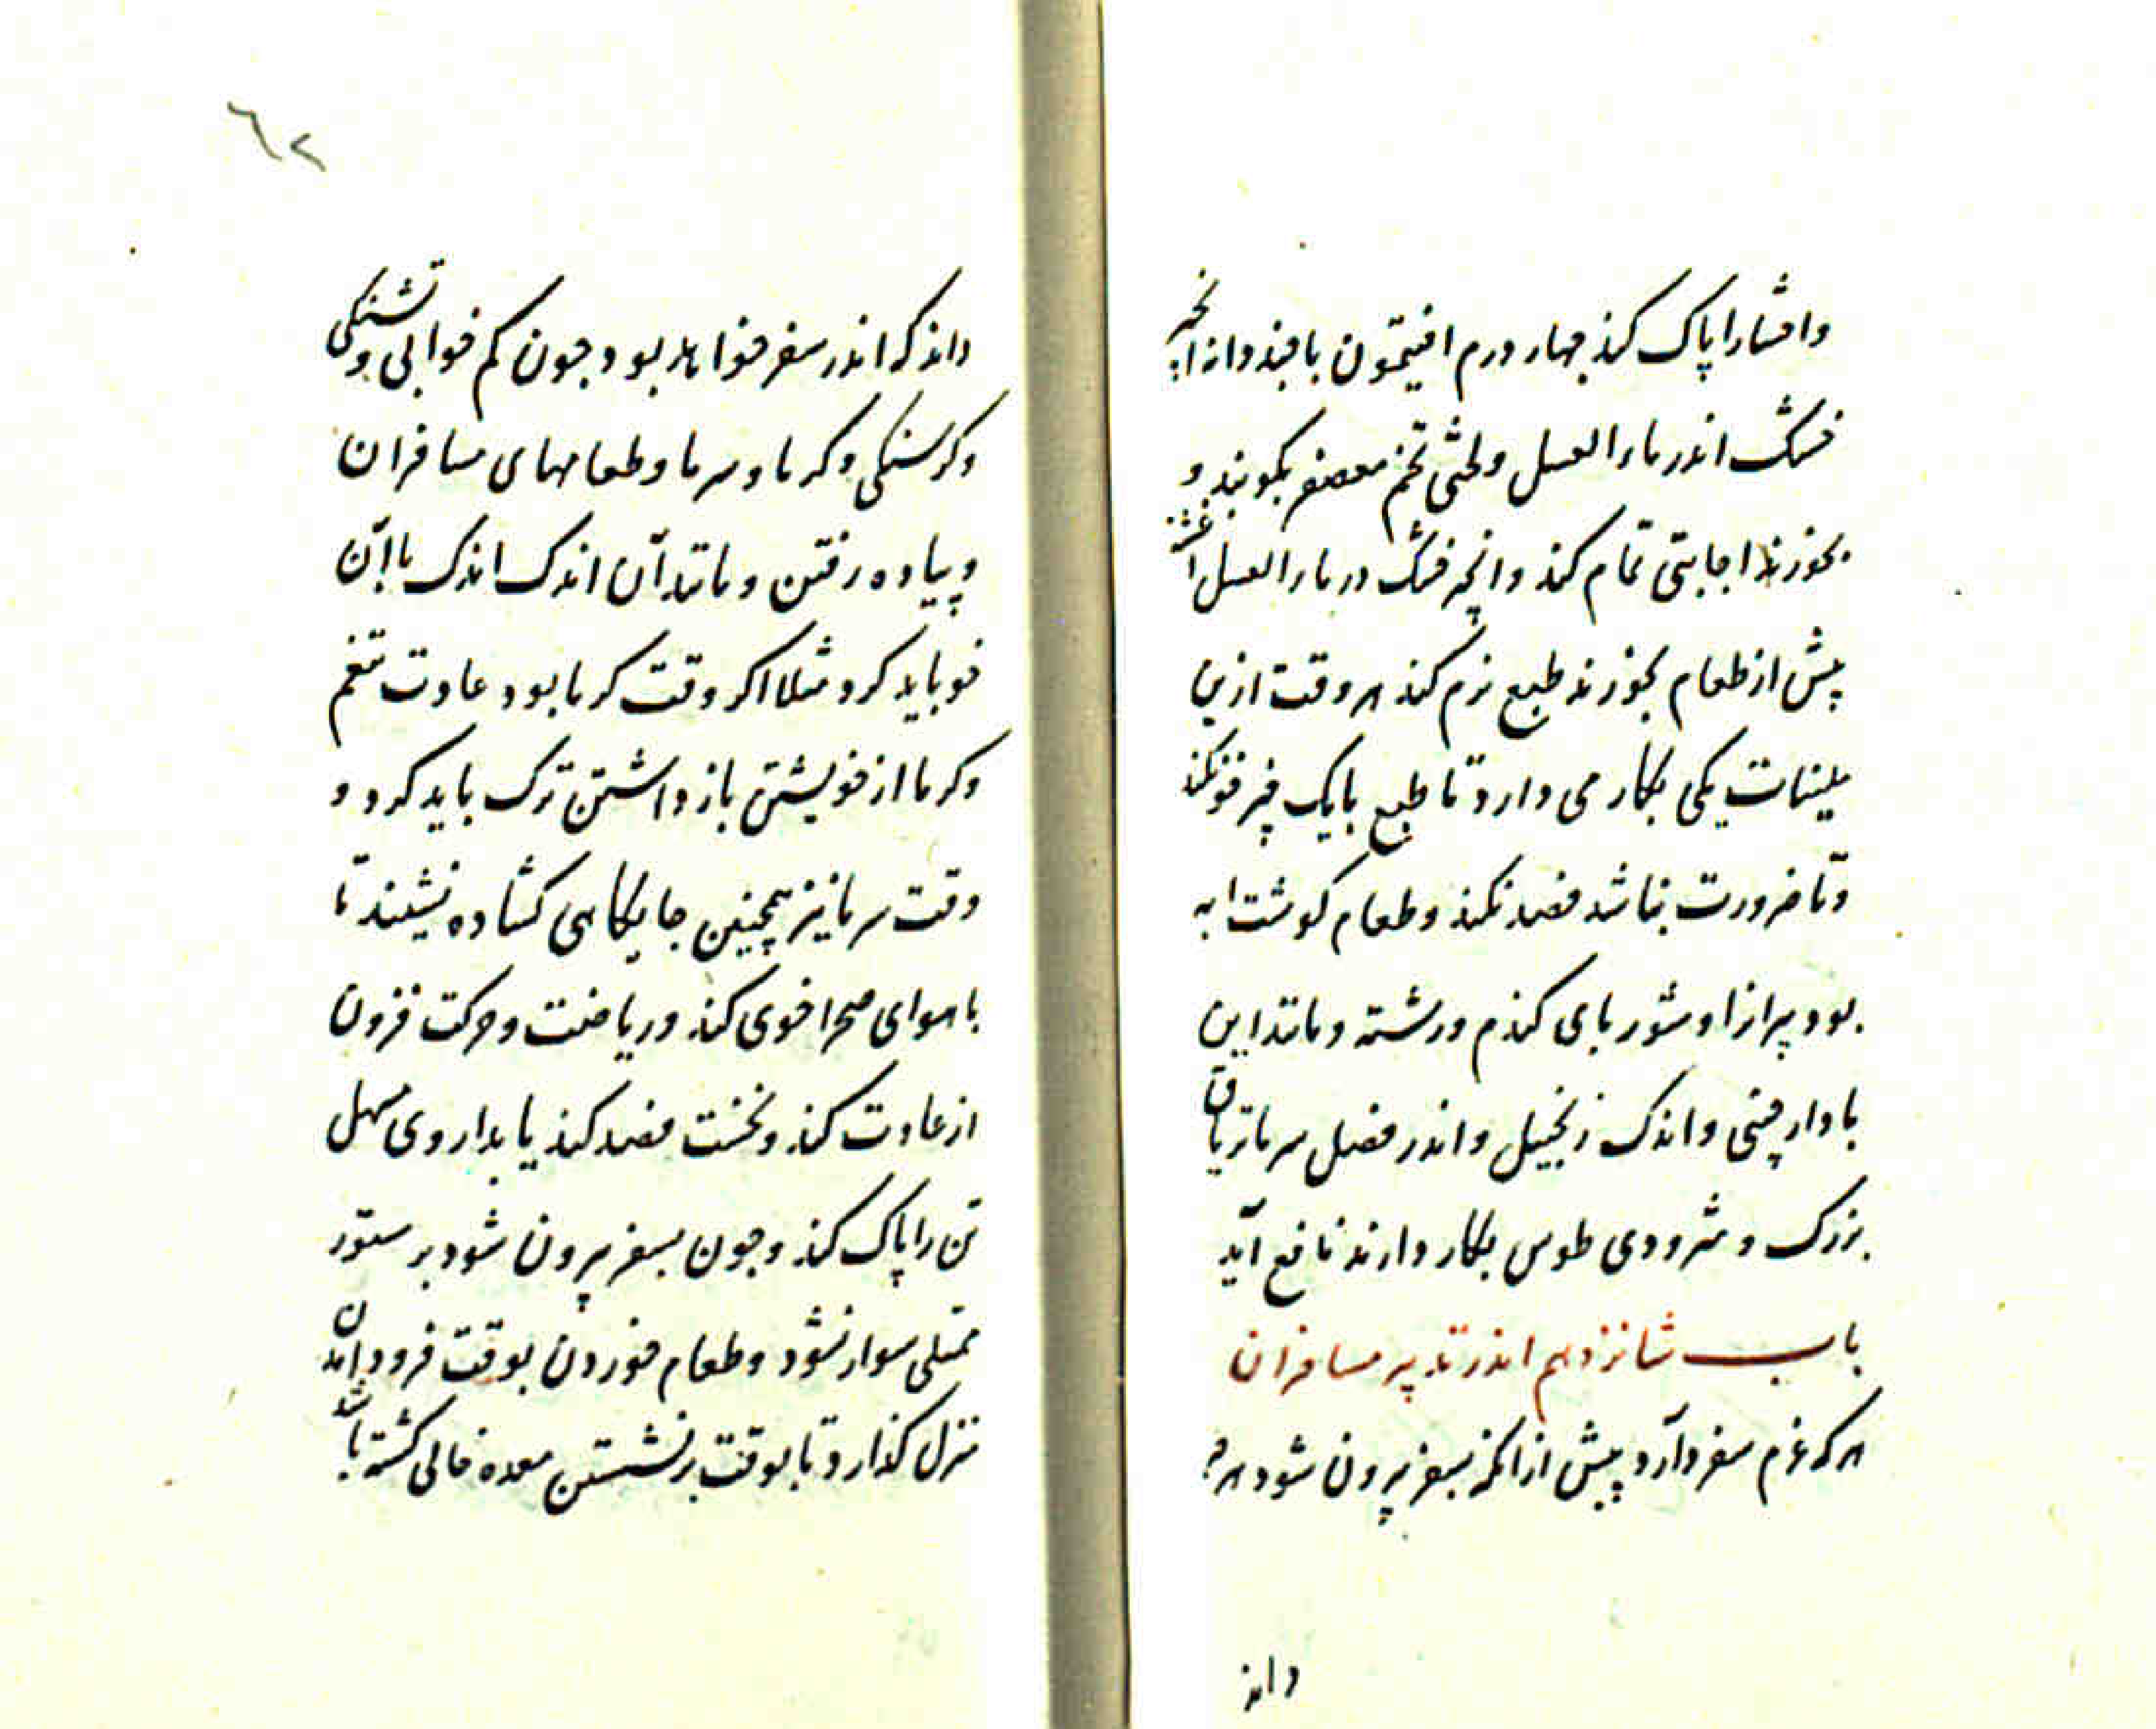 واحشا را پاک کند چهار درم افتیمون با چند دانه انجیر
خشک اندر ماء العسل و لختی تخم معصفر بکوبند و
بخورند اجابتی تمام کند و انچه خشک در ماء العسل اغشته
پیش از طعام بخورند طبع نرم کند هر وقت ازین
ملینات یکی بکار می دارد تا طبع بایک چیز خو نکند
و تا ضرورت نباشد فصد نکند و طعام کوشت ابه
بود پر ازار و شوربای کندم و رشته و مانند این
با دارچینی و اندک زنجبیل و اندر فصل سرما تریاق
بزرک و مثرودی طوس بکار دارند نافع آید
باب شانزدهم اندر تدبیر مسافران
هر که عزم سفر دارد پیش از انکه بسفر بیرون شود هرچه
داند
٦٢
داند که اندر سفر خواهد بود چون کم خوابی و تشنکی
و کرسنکی و کرما و سرما و طعامهای مسافران
و پیاده رفتن و مانند آن اندک اندک باآن
خو باید کرد مثلا اکر وقت کرما بود عادت تنعم
و کرما از خویشتن باز داشتن ترک باید کرد و
وقت سرما نیز همچنین جایکاهی کشاده نشیند تا
با هوای صحرا خوی کند و ریاضت و حرکت فزون
از عادت کند و نخست فصد کند یا بداروی مسهل
تن را پاک کند و چون بسفر بیرون شود بر ستور
ممتلی سوار نشود و طعام خوردن بوقت فرود امدن
منزل کذارد تا بوقت برنشستن معده خالی کشته باشد